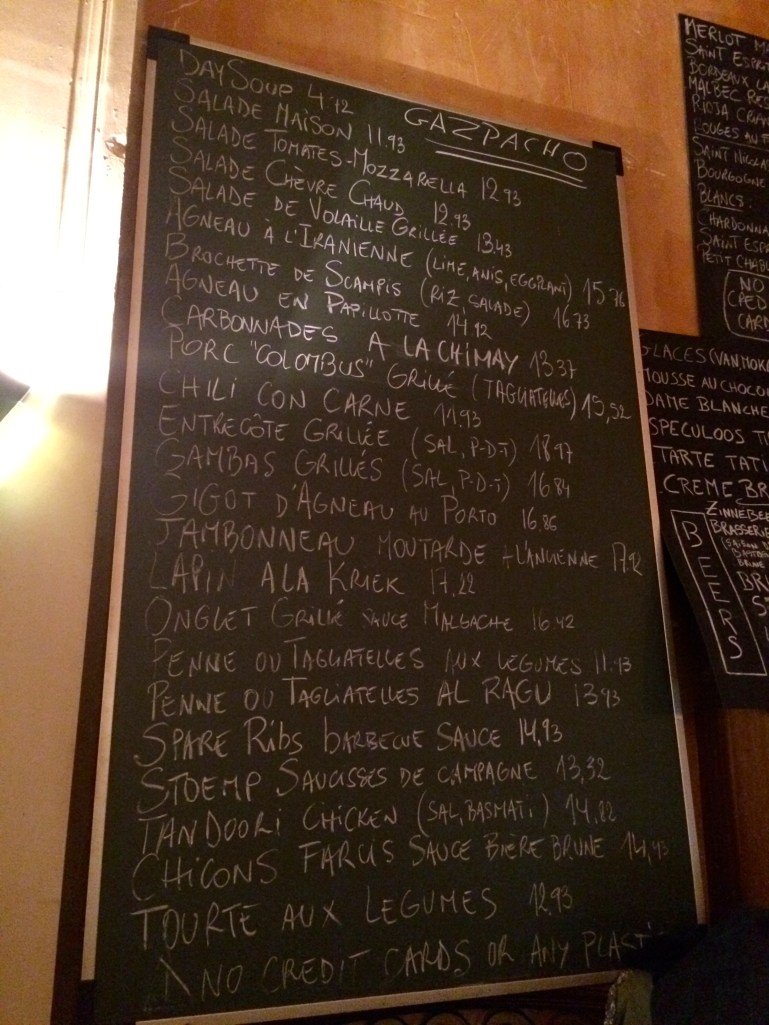 DAY SOUP 4.12 GAZPACHO
SALADE MAISON 11.93
SALADE TOMATES-MOZZARELLA 12.93
SALADE CHÈVRE CHAUD 12.93
SALADE DE VOLAILLE GRILLÉE 13.43
AGNEAU A L'IRANIENNE (LIME, ANIS, EGGPLANT) 15.76
BROCHETTE DE SCAMPIS (RIZ, SALADE) 16.73
AGNEAU EN PAPILLOTTE 14.12
CARBONNADES A LA CHIMAY 13.37
PORC "COLOMBUS" GRILLÉ (TAGLIATELLES) 15,52
CHILI CON CARNE 11.93
ENTRECÔTE GRILLÉE (SAL, P-D-T) 18.97
GAMBAS GRILLÉS (SAL, P-D-T) 16.84
GIGOT D'AGNEAU AU PORTO 16.86
JAMBONNEAU MOUTARDE A L'ANCIENNE
LAPIN A LA KRIEK 17,22
ONGLET GRILLÉ SAUCE MALGACHE 16.42
PENNE OU TAGLIATELLES AUX LEGUMES 11.93
PENNE OU TAGLIATELLES AL RAGU 13 93
SPARE RIBS BARBECUE SAUCE 14,93
STOEMP SAUCISSES DE CAMPAGNE 13,32
TANDOORI CHICKEN (SAL, BASMATI) 14,22
CHICONS FARCIS SAUCE BIÈRE BRUNE 14,93
TOURTE AUX LEGUMES 12.93
NO CREDIT CARDS OR ANY PLASTI
MERLOT
SAINT ESPRI
BORDEAUX
MALBEC
RIOJA CRIAN
ROUGES AU
SAINT NICOLA
BOURGOGNE
BLANCS:
CHARDONNA
SAINT ESP
PETIT CHAB
NO
CRED
CARD
GLACES (VAN, MOK
MOUSSE AU CHOCO
DAME BLANCHE
SPECULOOS
TARTE TATI
CREME BR
ZINNEBE
BRASSERIE
BEERS